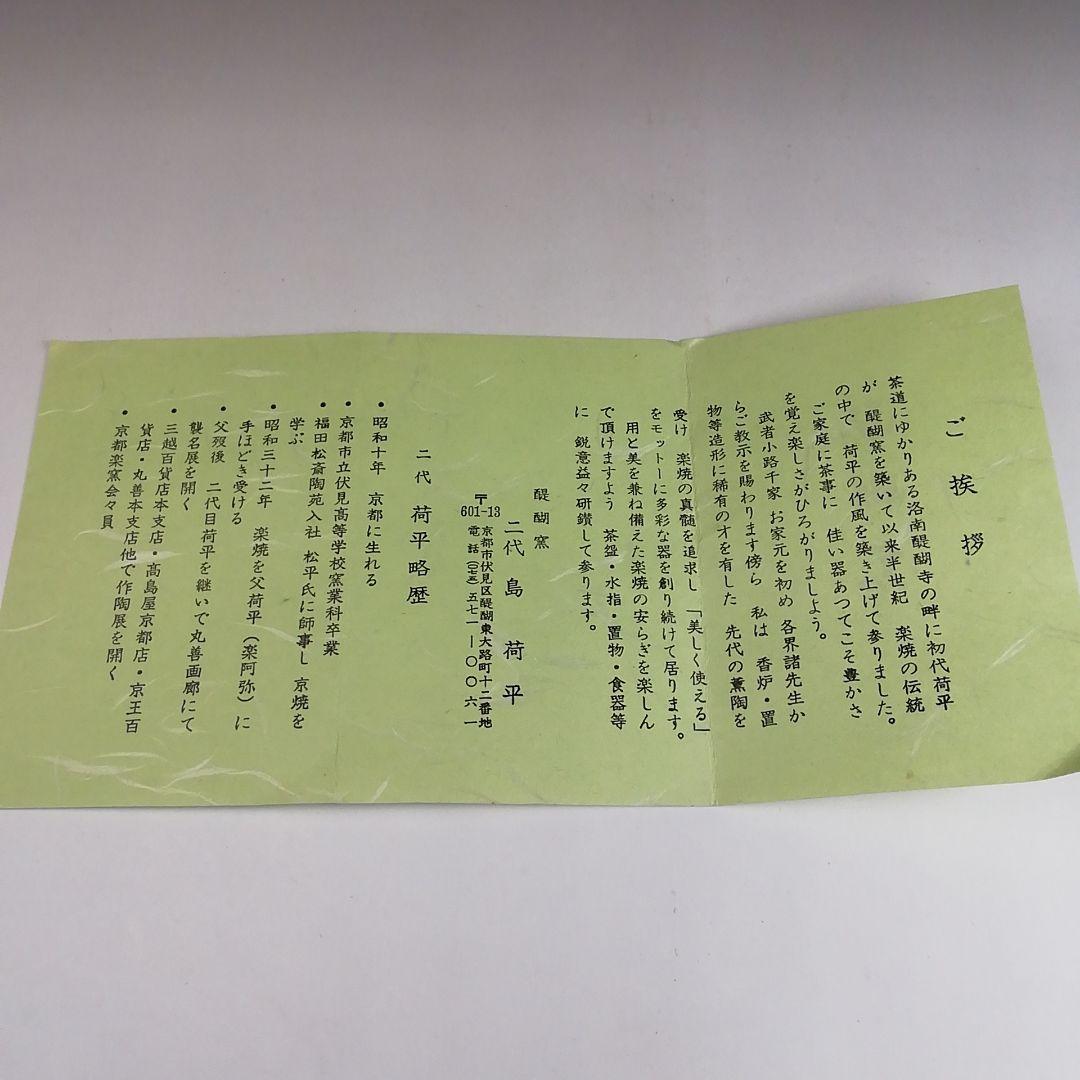 ご挨拶
茶道にゆかりある洛南醍醐寺の畔に初代荷平
が　醍醐窯を築いて以来半世紀　楽焼の伝統
の中で　荷平の作風を築き上げて参りました。
ご家庭に茶事に　佳い器あつてこそ豊かさ
を覚え楽しさがひろがりましよう。
武者小路千家　お家元を初め　各界諸先生か
らご教示を賜わります傍ら　私は　香炉・置
物等造形に稀有の才を有した　先代の薫陶を
受け　楽焼の真髄を追求し　「美しく使える」
をモットーに多彩な器を創り続けて居ります。
用と美を兼ね備えた楽焼の安らぎを楽しん
で頂けますよう　茶盌・水指・置物・食器等
に　鋭意益々研鑽して参ります。
醍醐窯
二代　島　荷平
〒601-13　京都市伏見区醍醐東大路町十二番地
電話(〇七五)五七一―〇〇六一
二代　荷平略歴
・昭和十年　京都に生れる
・京都市立伏見高等学校窯業科卒業
・福田松斎陶苑入社　松平氏に師事し京焼を
学ぶ
・昭和三十二年　楽焼を父荷平（楽阿弥）に
手ほどき受ける
・父歿後　二代目荷平を継いで丸善画廊にて
襲名展を開く
・三越百貨店本支店・髙島屋京都店・京王百
貨店・丸善本支店他で作陶展を開く
・京都楽窯会々員